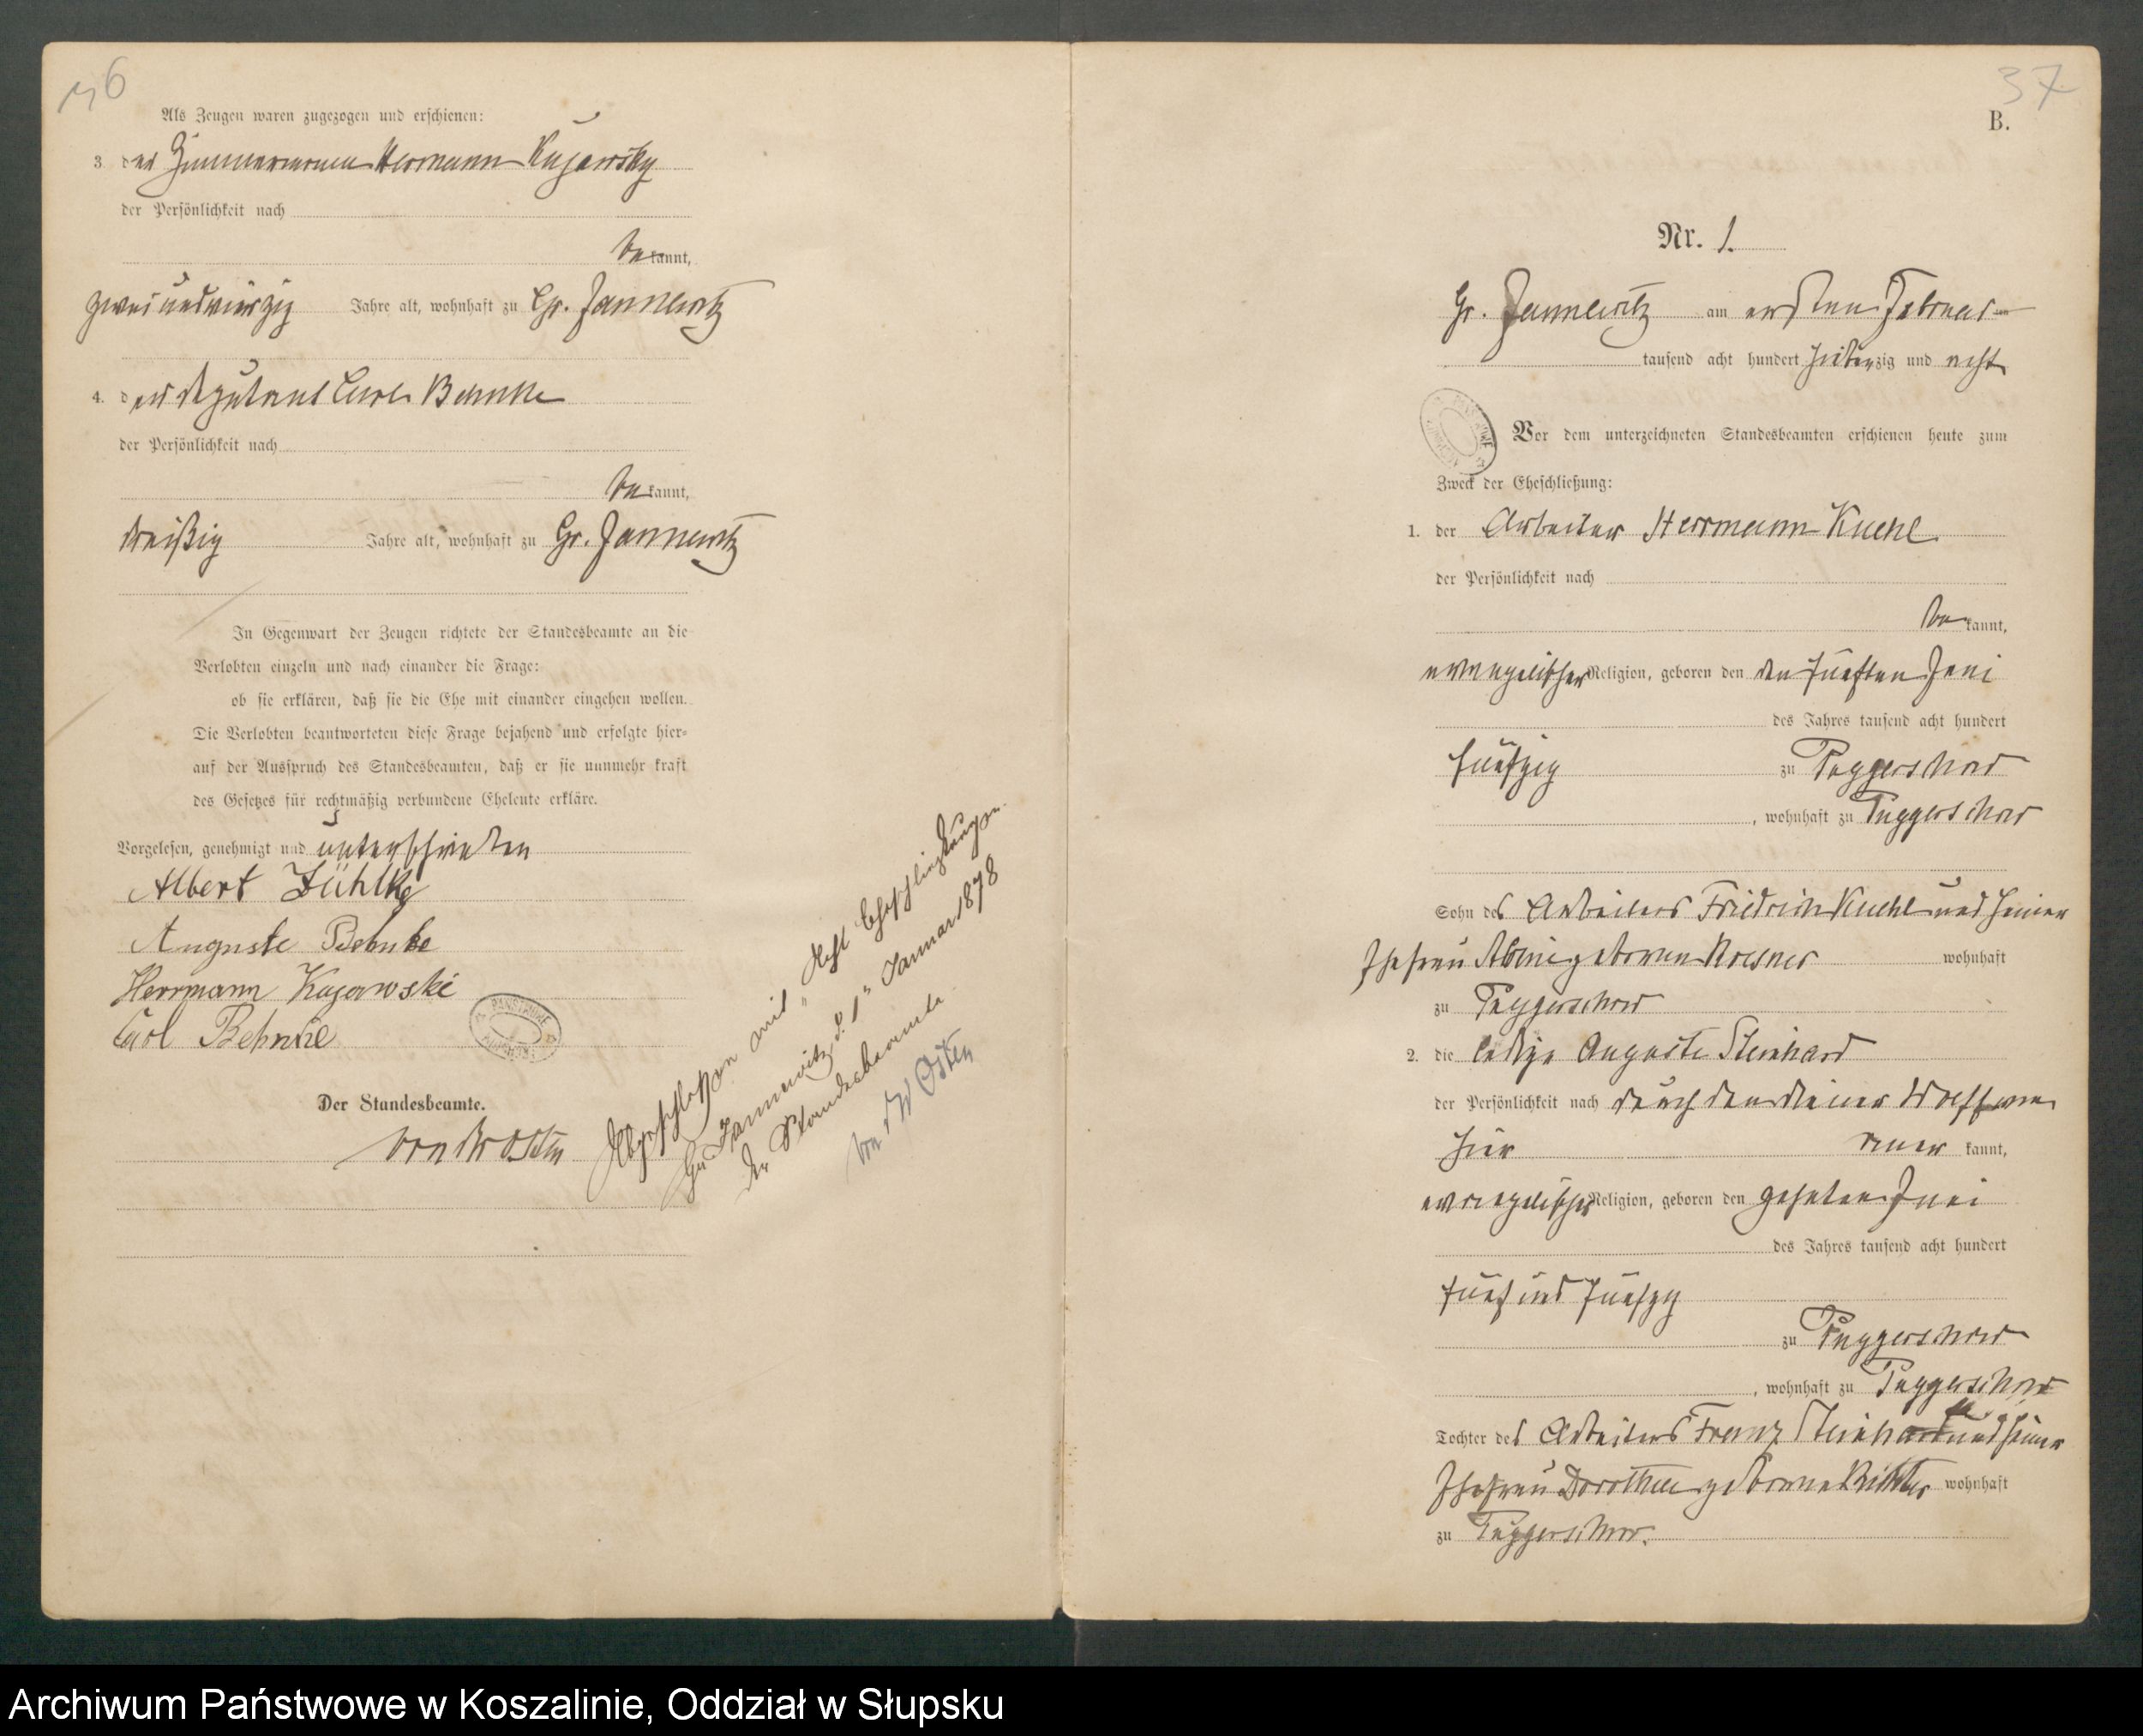 36
Als Zeugen waren zugezogen und erschienen:
3. der Zimmermann Hermann Kujawsky
der Persönlichkeit nach
bekannt,
zwei und vierzig Jahre alt, wohnhaft zu Gr. Jannewitz
4. der Deputant Carl Behnke
der Persönlichkeit nach
bekannt,
dreißig Jahre alt, wohnhaft zu Gr. Jannewitz
In Gegenwart der Zeugen richtete der Standesbeamte an die
Verlobten einzeln und nach einander die Frage:
ob sie erklären, daß sie die Ehe mit einander eingehen wollen.
Die Verlobten beantworteten diese Frage bejahend und erfolgte hier-
auf der Ausspruch des Standesbeamten, daß er sie nunmehr kraft
des Gesetzes für rechtmäßig verbundene Eheleute erkläre.
Vorgelesen, genehmigt und unterschrieben
Albert Zühlke
Auguste Behnke
Herrmann Kujawski
Carl Behnke
Der Standesbeamte.
von der Osten
Abgeschlossen mit Acht Eheschließungen.
Gr. Jannewitz d. 1" Januar 1878
Der Standesbeamte
von der Osten
37
B.
Nr. 1.
Gr. Jannewitz am ersten Februar
tausend acht hundert siebenzig und acht
Vor dem unterzeichneten Standesbeamten erschienen heute zum
Zweck der Eheschließung:
1. der Arbeiter Herrmann Kuehl
der Persönlichkeit nach
bekannt,
evangelischer Religion, geboren den den fünften Juni
des Jahres tausend acht hundert
fünfzig zu Puggerschow
, wohnhaft zu Puggerschow
Sohn des Arbeiters Friedrich Kuehl und seiner
Ehefrau geborenen wohnhaft
zu Puggerschow
2. die ledige Auguste Steinhard
der Persönlichkeit nach durch den Diener
hier kannt,
evangelischer Religion, geboren den zehnten Juni
des Jahres tausend acht hundert
fünf und fünfzig
zu Puggerschow
, wohnhaft zu Puggerschow
Tochter des Arbeiters Franz Steinhard und seiner
Ehefrau Dorothea geborene Richter wohnhaft
zu Puggerschow.
Archiwum Państwowe w Koszalinie, Oddział w Słupsku